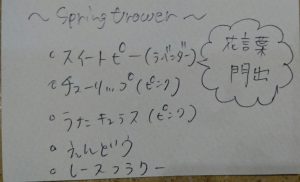 ～ Spring flower ～
。スイートピー (ラバンダー)
花言葉
門出
。チューリップ (ピンク)
。ラナンキュラス (ピンク)
。えんどう
。レースフラワー